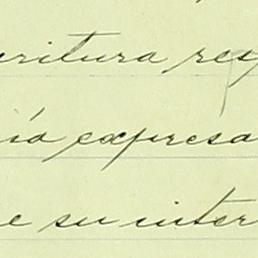 critura resp
ía expresa
e su inter